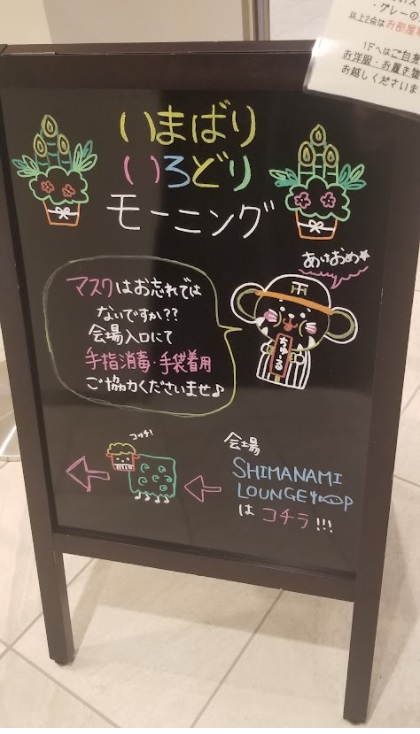 ・グレーの
以上2会はお部屋
1Fへはご自身
お洋服・お置き物
お越しくださいま
いまばり
いろどり
モーニング
あけおめ
マスクはお忘れでは
ないですか??
会場入口にて
手指消毒・手袋着用
ご協力くださいませ♪
ちゅ~る
コッチ!
会場
SHIMANAMI
LOUNGE
は コチラ!!!